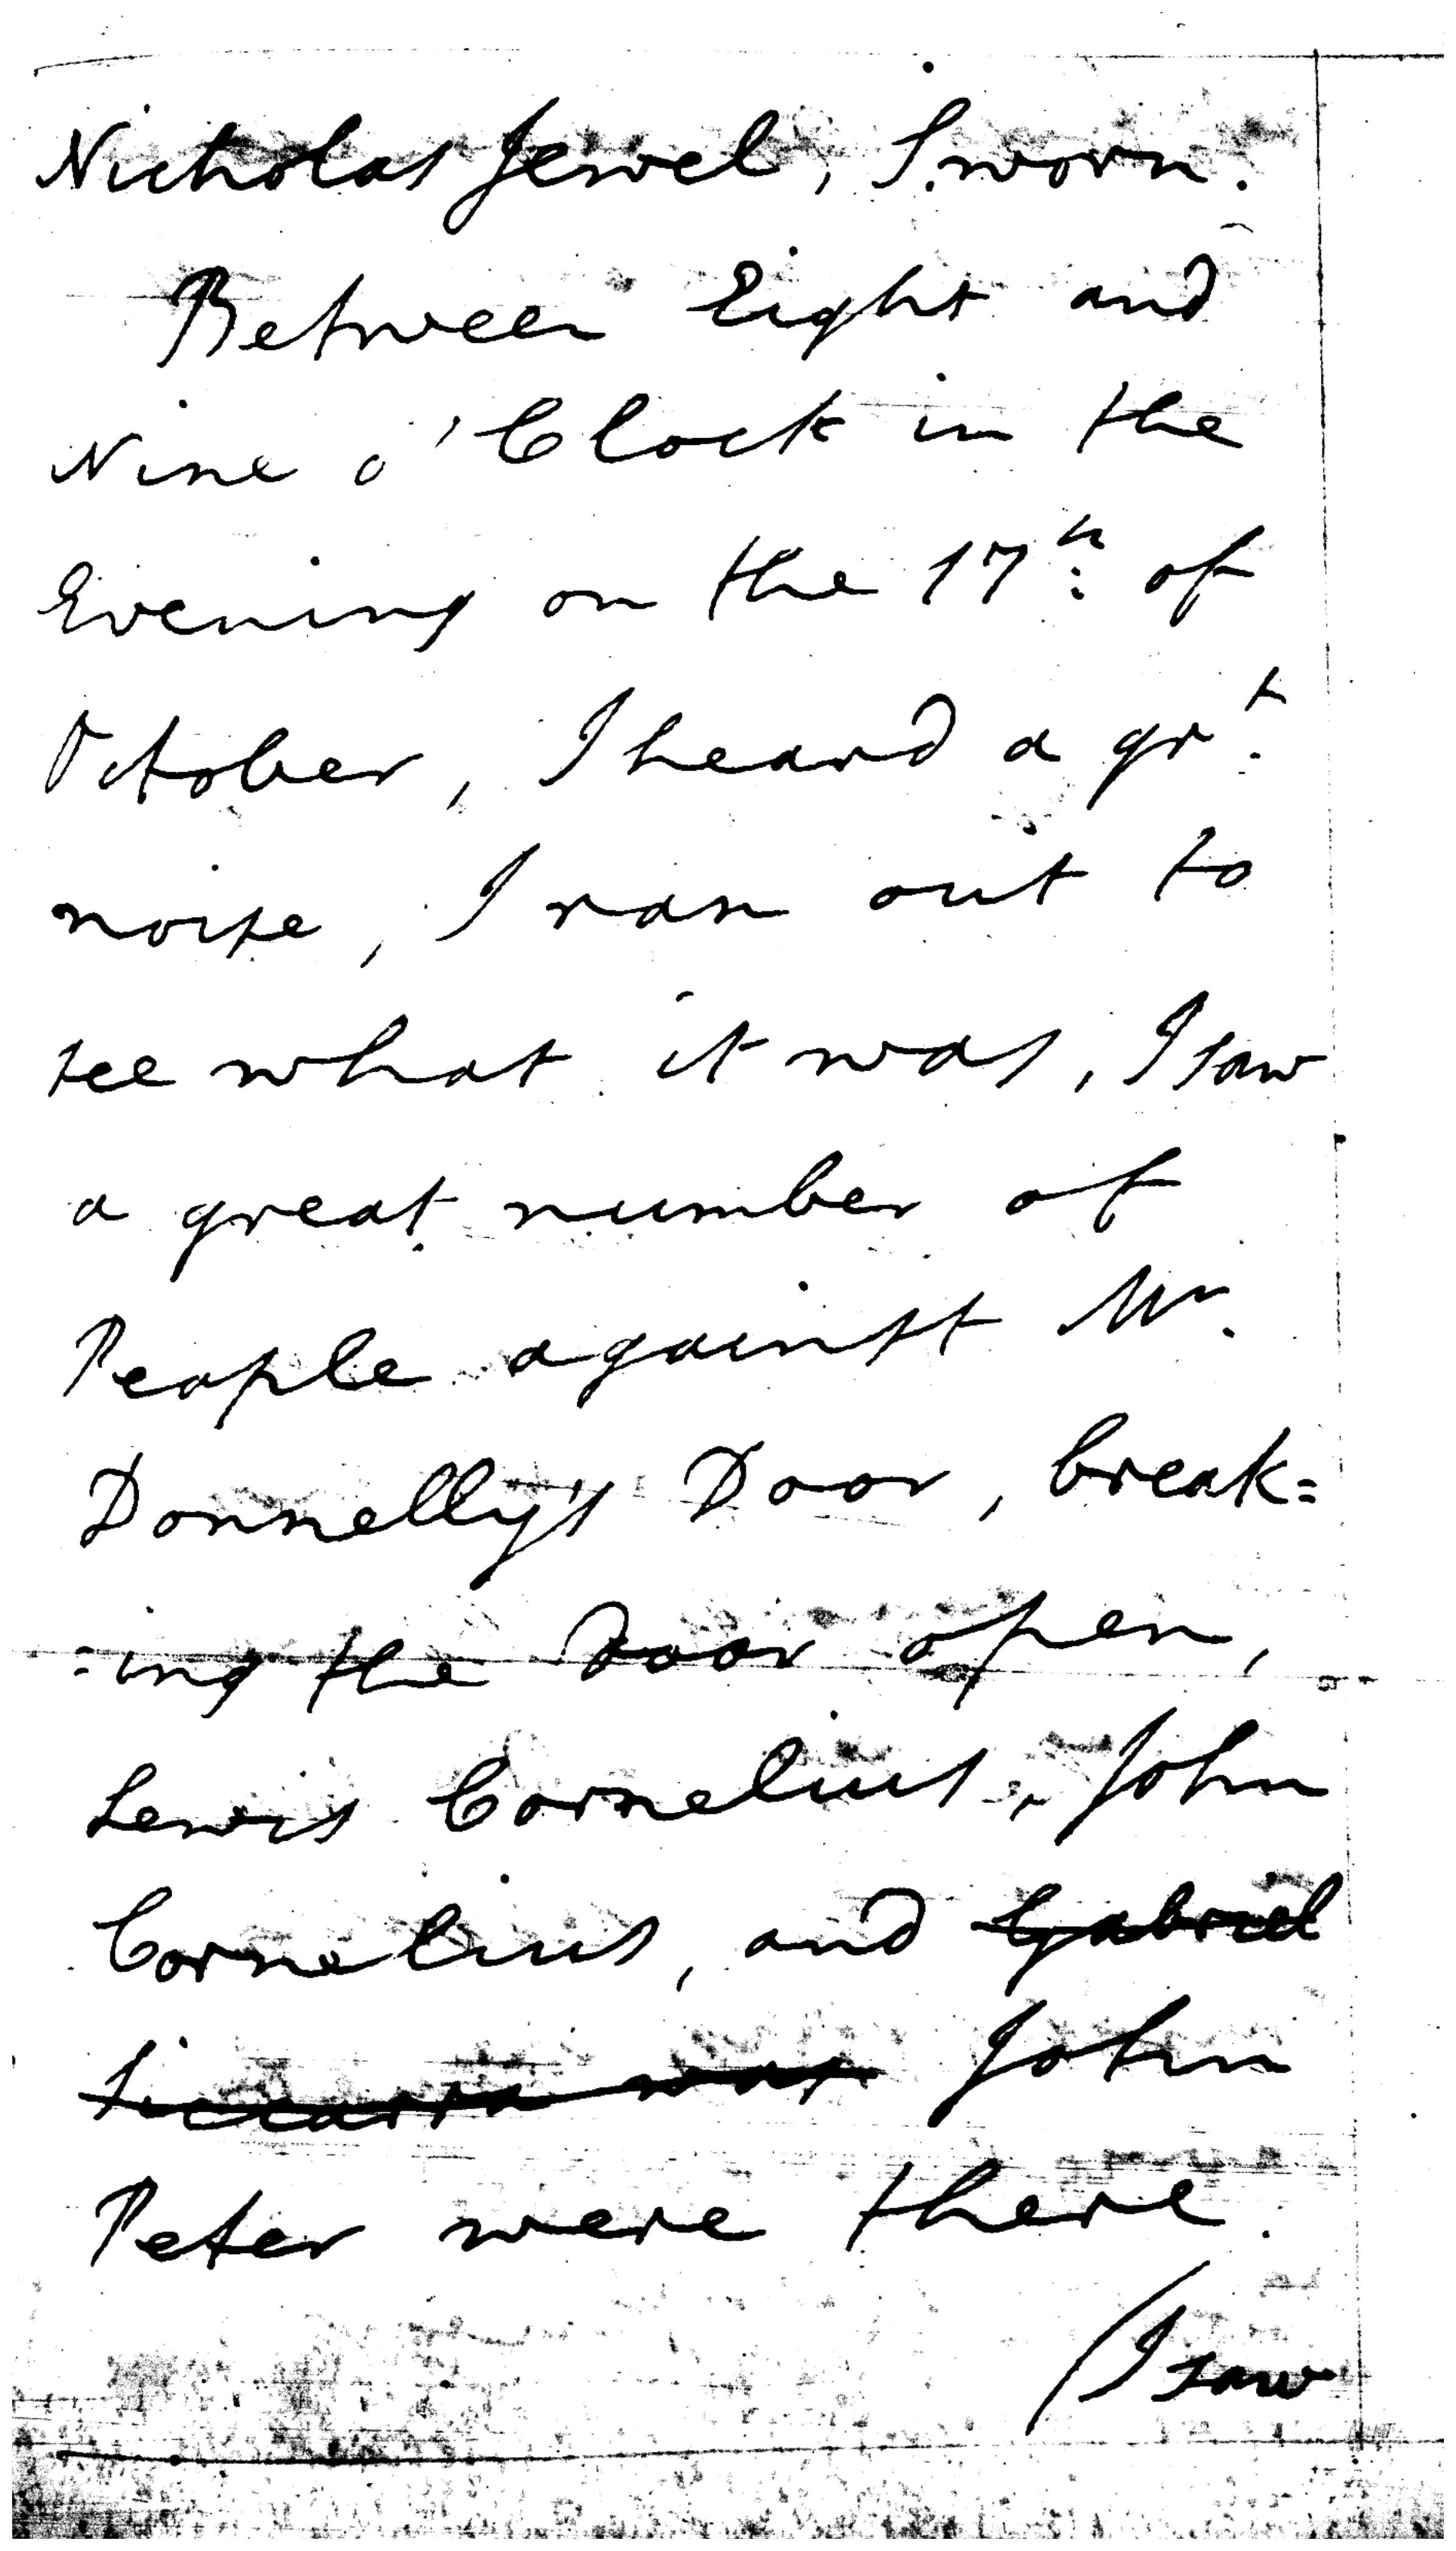 Nicholas Jewel, Sworn.
Between Eight and
Nine o'Clock in the
Evening on the 17th: of
October, I heard a grt.
noise, I ran out to
see what it was, I saw
a great number of
People against Mr.
Donnelly's Door, break=
=ing the Door open,
Lewis Cornelius, John
Cornelius, and Gabriel
was John
Peter were there.
I saw